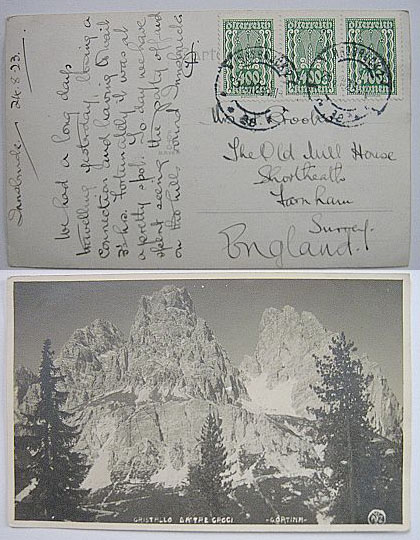 Innsbruck 24.8.23.
We had a long days
travelling yesterday losing a
connection and having to wait
3½ hrs. Fortunately it was at
a pretty spot. To day we have
spent seeing the
on the hills round Innsbruck
Österreich Österreich Österreich
400 400 400
Kronen Kronen Kronen
Brooke
The Old Mill House
Shortheath
Farnham
Surrey.
England.
CRISTALLO DA TRE CROCI -CORTINA-